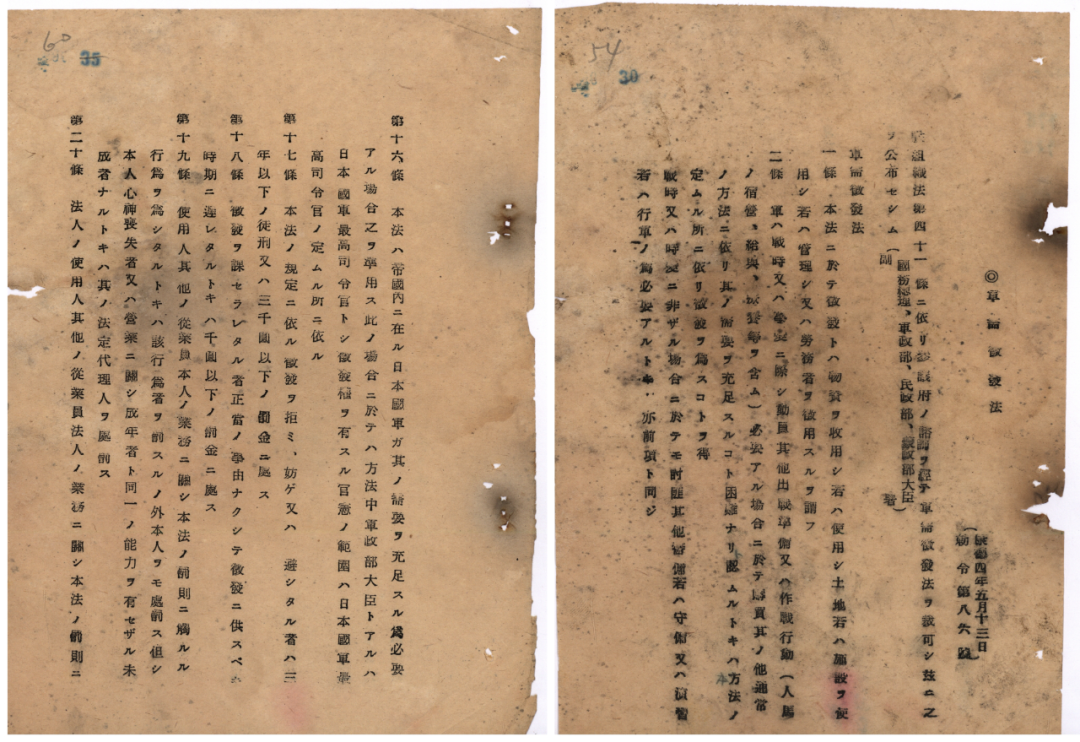 54
30
◎軍需徴發法
(康德四年五月十三日
勅令第八六號)
朕組織法第四十一條ニ依リ參議府ノ諮詢ヲ經テ軍需徴發法ヲ裁可シ玆ニ之
ヲ公布セシム(國務總理、軍政部、民政部、財政部大臣副署)
軍需徴發法
一條 本法ニ於テ徴發トハ物資ヲ收用シ若ハ使用シ土地若ハ施設ヲ使
用シ若ハ管理シ又ハ勞務者ヲ徴用スルヲ謂フ
二條 軍ハ戰時又ハ事變ニ際シ動員其他出戰準備又ハ作戰行動(人馬
ノ宿營、給與、演習等ヲ含ム)必要アル場合ニ於テ購買其ノ他通常
ノ方法ニ依リ其ノ需要ヲ充足スルコト困難ナリ認ムルトキハ方法ノ
定ムル所ニ依リ徴發ヲ爲スコトヲ得
戰時又ハ時變ニ非ザル場合ニ於テモ討匪其他警備若ハ守備又ハ演習
若ハ行軍ノ爲必要アルトキ亦前項ト同ジ
60
35
第十六條 本法ハ帝國內ニ在ル日本國軍ガ其ノ需要ヲ充足スル爲必要
アル場合之ヲ準用ス此ノ場合ニ於テハ方法中軍政部大臣トアルハ
日本國軍最高司令官トシ徴發權ヲ有スル官憲ノ範圍ハ日本國軍最
高司令官ノ定ムル所ニ依ル
第十七條 本法ノ規定ニ依ル徴發ヲ拒ミ、妨ゲ又ハ 避シタル者ハ三
年以下ノ徒刑又ハ三千圓以下ノ罰金ニ處ス
第十八條 徴發ヲ課セラレタル者正當ノ事由ナクシテ徴發ニ供スベキ
時期ニ遲レタルトキハ千圓以下ノ罰金ニ處ス
第十九條 使用人其他ノ從業員本人ノ業務ニ關シ本法ノ罰則ニ觸ルル
行爲ヲ爲シタルトキハ該行爲者ヲ罰スルノ外本人ヲモ處罰ス但シ
本人心神喪失者又ハ營業ニ關シ成年者ト同一ノ能力ヲ有セザル未
成者ナルトキハ其ノ法定代理人ヲ處罰ス
第二十條 法人ノ使用人其他ノ從業員法人ノ業務ニ關シ本法ノ罰則ニ